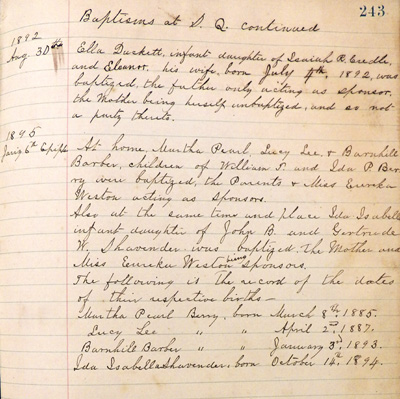 243
Baptisms at S. Q. continued
1892
Aug. 30th
Ella Duckett, infant daughter of Isaiah R. Credle,
and Eleanor, his wife, born July 4th, 1892, was
baptized, the father only acting as sponsor,
the Mother being herself unbaptized, and so not
a party thereto.
1895
Jan'y 6th Epiph
At home, Murtha Pearl, Lucy Lee, & Barnhill
Barber, children of William T. and Ida P Ber
ry were baptized, the Parents & Miss Eureka
Weston acting as Sponsors.
Also at the same time and place Ida Isabella
infant daughter of John B. and Gertrude
W. Shavender was baptized, the Mother and
Miss Eureka Weston being Sponsors.
The following is the record of the dates
of their respective births—
Murtha Pearl Berry, born March 8th, 1885.
Lucy Lee " " April 2nd, 1887.
Barnhill Barber " " January 3rd, 1893.
Ida Isabella Shavender, born October 14th, 1894.